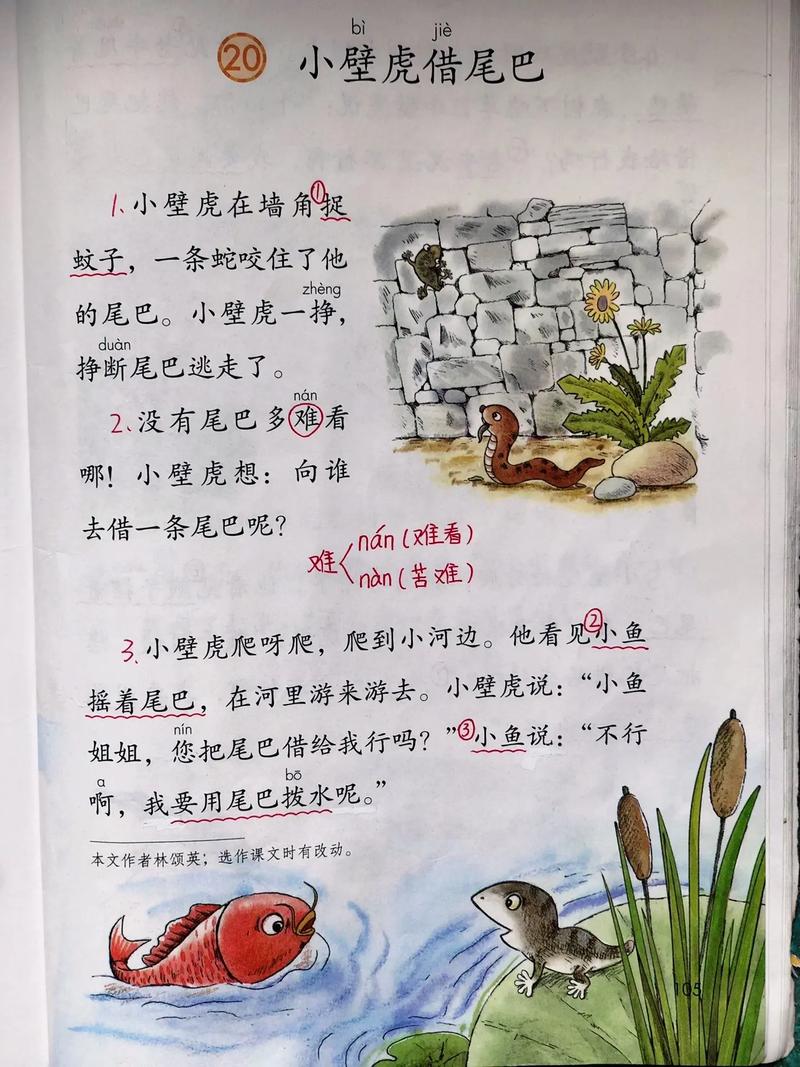 bì jiè
20 小壁虎借尾巴
1.小壁虎在墙角①捉
蚊子，一条蛇咬住了他
zhèng
的尾巴。小壁虎一挣，
duàn
挣断尾巴逃走了。
nán
2.没有尾巴多难看
哪！小壁虎想：向谁
去借一条尾巴呢？
难 nán（难看）
nàn（苦难）
3.小壁虎爬呀爬，爬到小河边。他看见②小鱼
摇着尾巴，在河里游来游去。小壁虎说：“小鱼
nín
姐姐，您把尾巴借给我行吗？”③小鱼说：“不行
a bō
啊，我要用尾巴拨水呢。”
本文作者林颂英；选作课文时有改动。
105